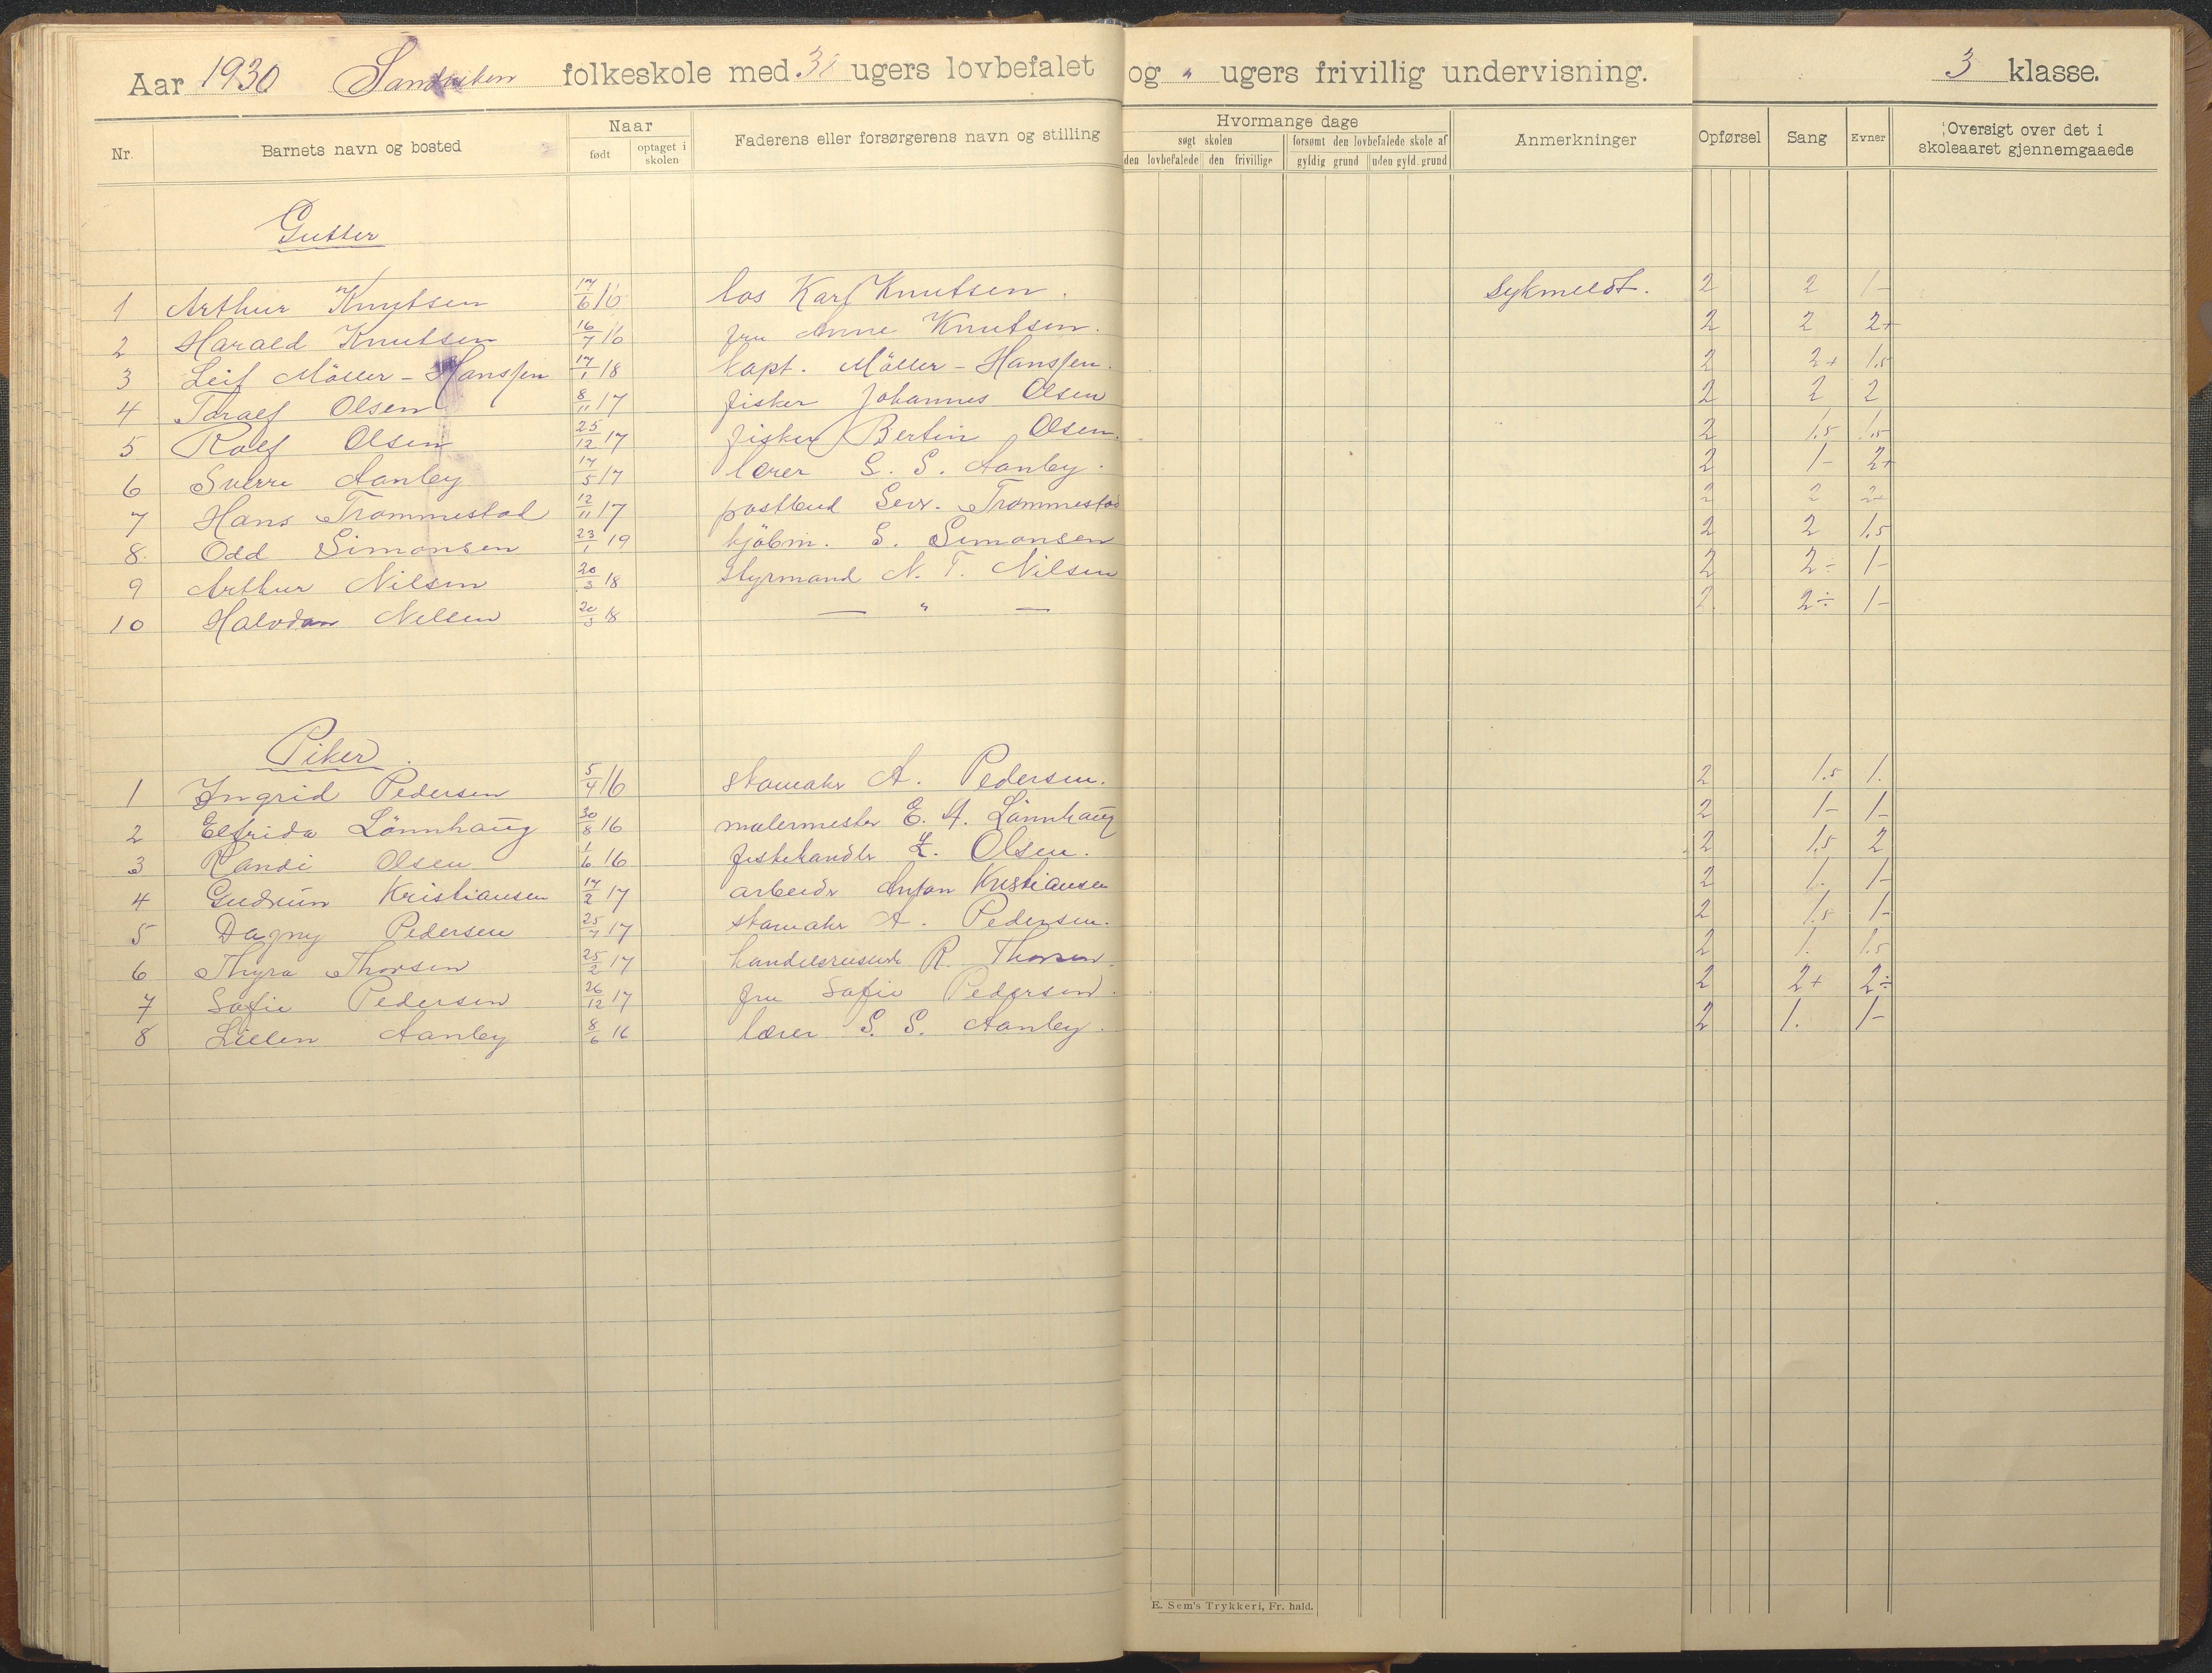 Aar 1930 Sandviken folkeskole med ugers lovbefalet og " ugers frivillig undervisning. 3 klasse.
Nr. Barnets navn og bosted Naar født optaget i skolen Faderens eller forsørgerens navn og stilling Hvormange dage søgt skolen den lovbefalede den frivillige forsømt den lovbefalede skole af gyldig grund uden gyld. grund Anmerkninger Opførsel Sang Evner Oversigt over det i skoleaaret gjennemgaaede
Gutter
1 Arthur Knutsen 17/6 16 los Karl Knutsen. Sykmeldt. 2 2 1-
2 Harald Knutsen 16/7 16 fru Anne Knutsen. 2 2 2+
3 Leif Möller-Hanssen 17/1 18 kapt. Möller-Hanssen. 2 2+ 1,5
4 Toralf Olsen 8/11 17 fisker Johannes Olsen 2 2 2
5 Rolf Olsen 25/12 17 fisker Bertin Olsen. 2 1,5 1,5
6 Sverre Aanby 17/5 17 lærer S. S. Aanby. 2 1- 2+
7 Hans Trommestad 12/11 17 postbud Trommestad 2 2 2+
8. Odd Simonsen 23/1 19 kjöbm. S. Simonsen 2 2 1,5
9 Arthur Nilsen 20/3 18 styrmand N. T. Nilsen 2 2÷ 1-
10 Halvdan Nilsen 20/3 18 — " — 2 2÷ 1-
Piker.
1 Ingrid Pedersen 5/4 16 skomaker A. Pedersen. 2 1,5 1.
2 Elfrida Lönnhaug 30/8 16 malermester E. A. Lönnhaug 2 1- 1-
3 Randi Olsen 1/6 16 fiskehandler Olsen. 2 1,5 2
4 Gudrun Kristiansen 17/2 17 arbeider Anton Kristiansen 2 1. 1-
5 Dagny Pedersen 25/7 17 skomaker A. Pedersen. 2 1,5 1-
6 Thyra Thorsen 25/2 17 handelsreisende R. Thorsen. 2 1. 1,5
7 Sofie Pedersen 26/12 17 fru Sofie Pedersen. 2 2+ 2÷
8 Lillen Aanby 8/6 16 lærer S. S. Aanby. 2 1. 1-
E. Sem's Trykkeri, Fr. hald.